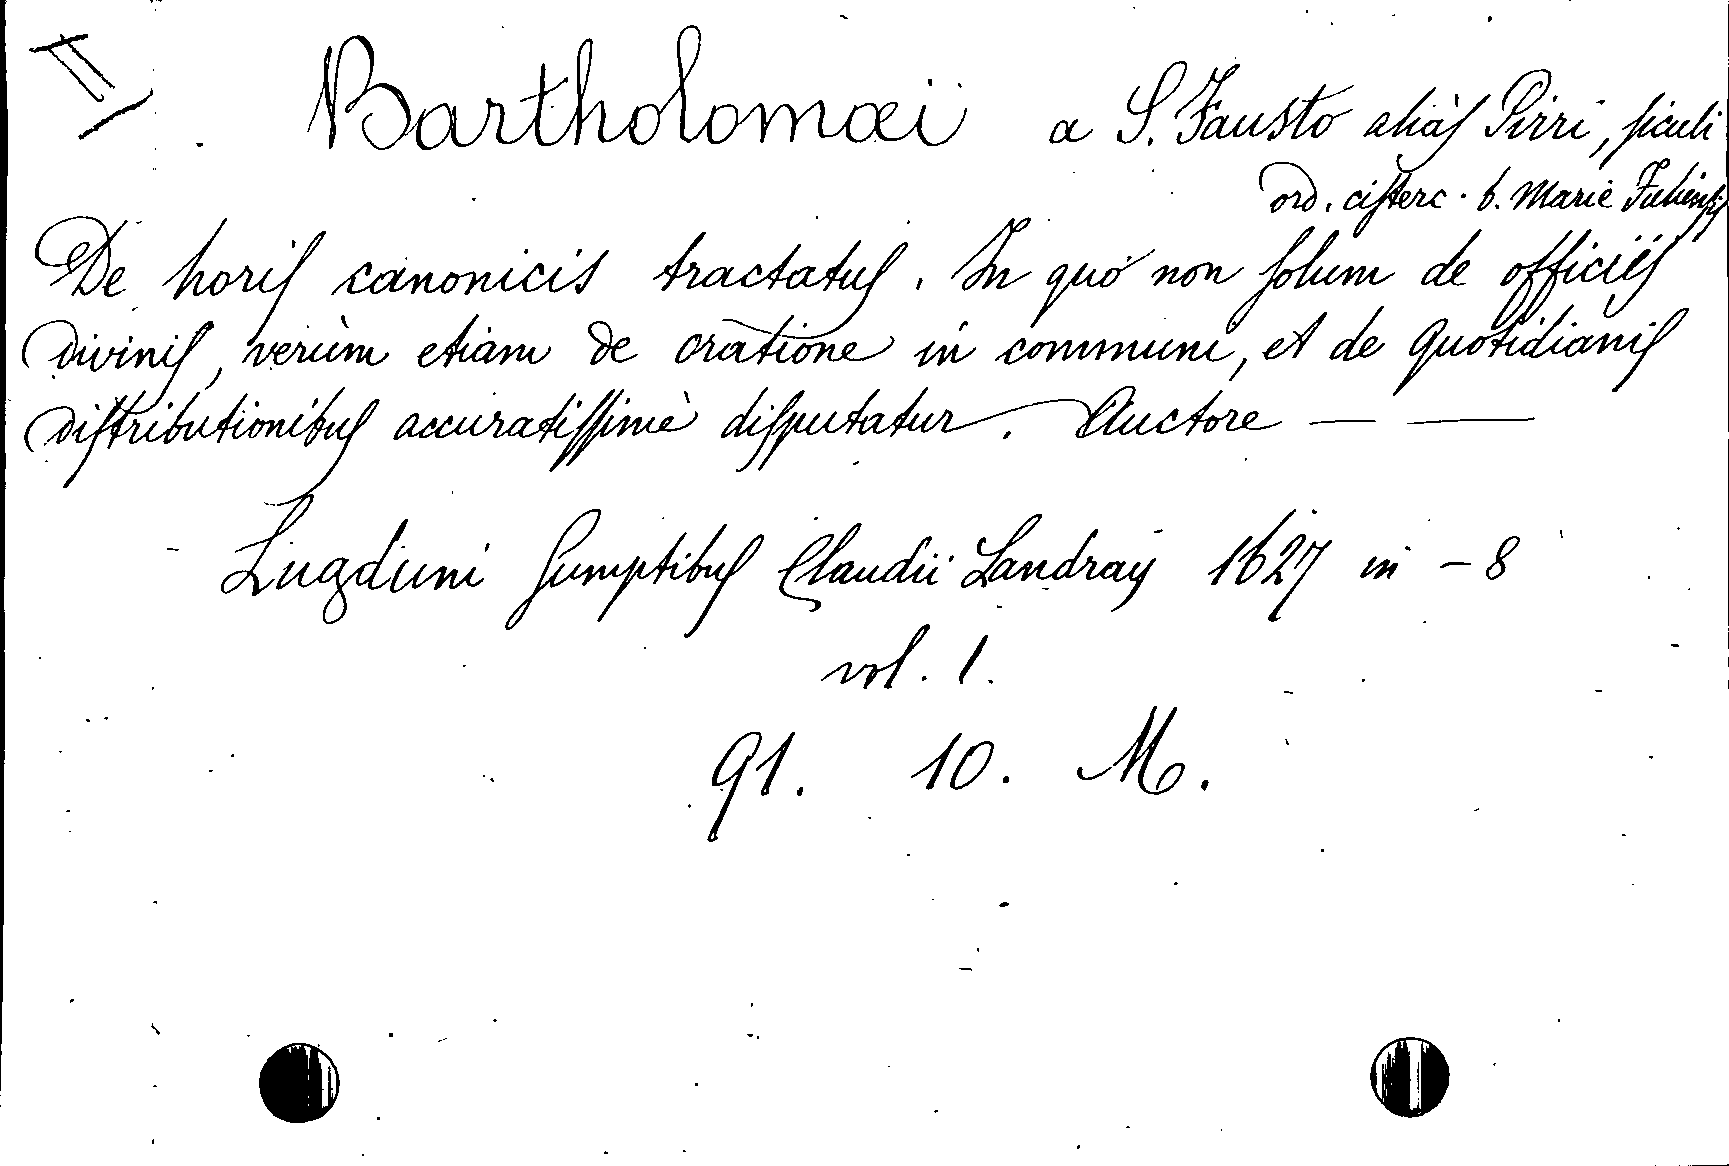 II
Bartholomæi a S. Fausto aliàs Pirri, siculi
ord. cisterc. b. Marie
De horis canonicis tractatus. In quo non solum de officiis
divinis, verùm etiam de oratione in communi, et de quotidianis
distributionibus accuratissimè disputatur. Auctore — —
Lugduni Sumptibus Claudii Landray 1627 in - 8
vol. 1.
91. 10. M.